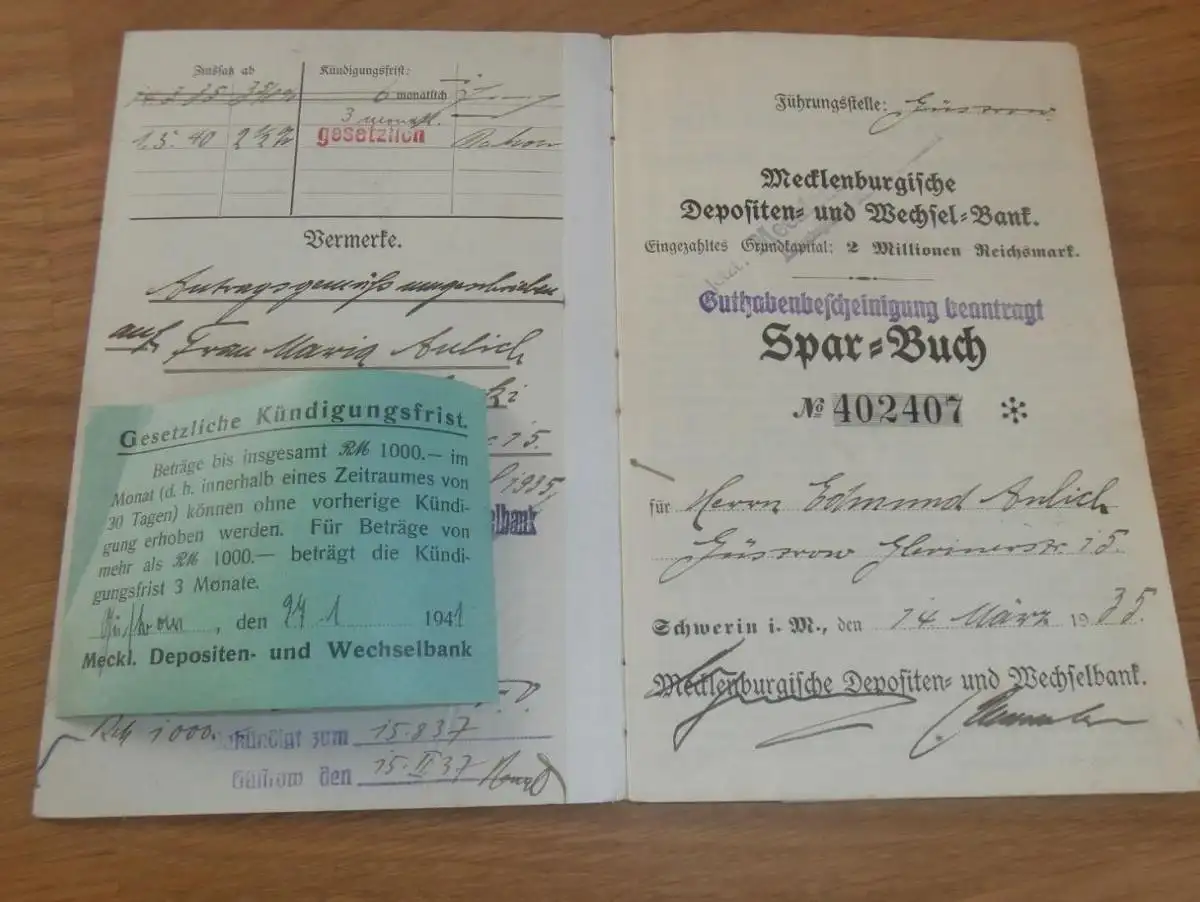 Zinssatz ab
Kündigungsfrist:
14 3 35
6 monatlich
3 monatl.
1.5. 40 2½%
gesetzlich
Vermerke.
Antragsgemäß umgeschrieben
auf Frau Maria Anlich
15.
1935
lbank
Gesetzliche Kündigungsfrist.
Beträge bis insgesamt RM 1000.— im
Monat (d. h. innerhalb eines Zeitraumes von
30 Tagen) können ohne vorherige Kündi-
gung erhoben werden. Für Beträge von
mehr als RM 1000.— beträgt die Kündi-
gungsfrist 3 Monate.
Güstrow, den 1 1941
Meckl. Depositen- und Wechselbank
1000. kündigt zum 15.8 37
Güstrow den 15. II 37
Führungsstelle: Güstrow.
Mecklenburgische
Depositen- und Wechsel-Bank.
Eingezahltes Grundkapital: 2 Millionen Reichsmark.
Guthabenbescheinigung beantragt
Spar-Buch
№ 402407 *
für Herrn Edmund Anlich
Güstrow 15.
Schwerin i. M., den 14. März 1935.
Mecklenburgische Depositen- und Wechselbank.